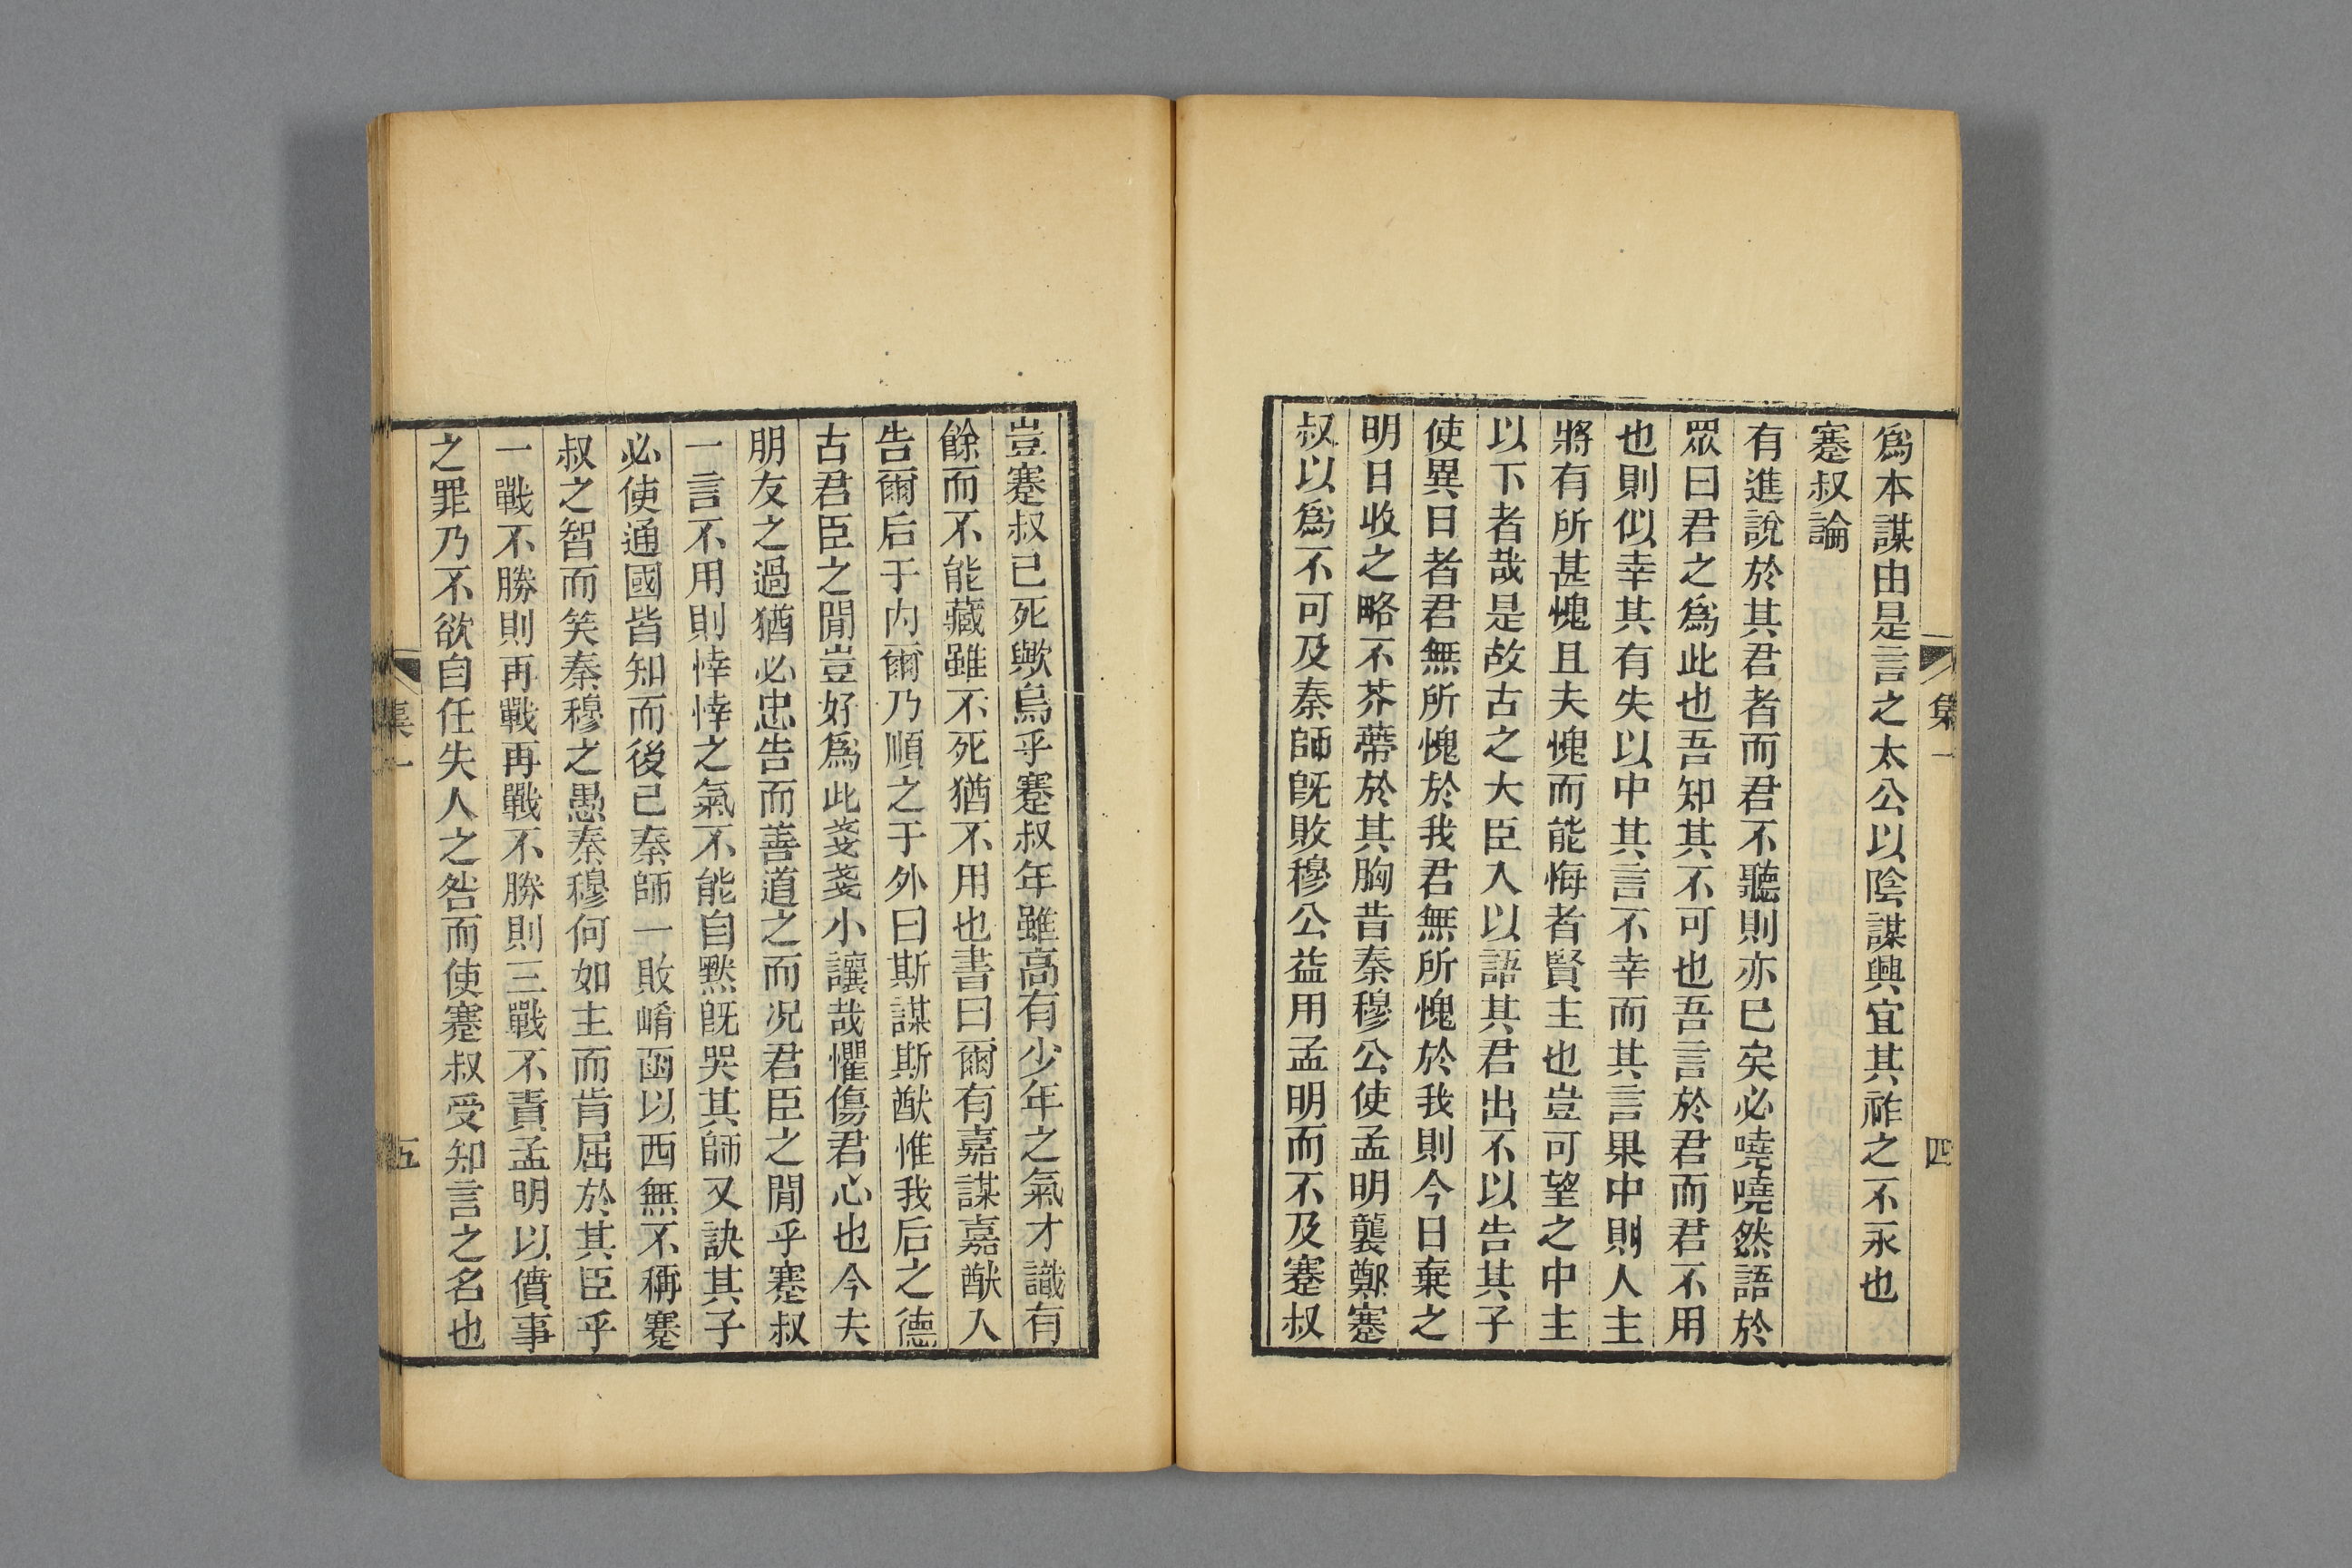 集一
四
爲本謀由是言之太公以陰謀興宜其祚之不永也
蹇叔論
有進說於其君者而君不聽則亦已矣必嘵嘵然語於
眾曰君之爲此也吾知其不可也吾言於君而君不用
也則似幸其有失以中其言不幸而其言果中則人主
將有所甚愧且夫愧而能悔者賢主也豈可望之中主
以下者哉是故古之大臣入以語其君出不以告其子
使異日者君無所愧於我君無所愧於我則今日棄之
明日收之略不芥蔕於其胸昔秦穆公使孟明襲鄭蹇
叔以爲不可及秦師旣敗穆公益用孟明而不及蹇叔
豈蹇叔已死歟烏乎蹇叔年雖高有少年之氣才識有
餘而不能藏雖不死猶不用也書曰爾有嘉謀嘉猷入
告爾后于內爾乃順之于外曰斯謀斯猷惟我后之德
古君臣之閒豈好爲此戔戔小讓哉懼傷君心也今夫
朋友之過猶必忠告而善道之而况君臣之閒乎蹇叔
一言不用則悻悻之氣不能自黙旣哭其師又訣其子
必使通國皆知而後已秦師一敗崤函以西無不稱蹇
叔之智而笑秦穆之愚秦穆何如主而肯屈於其臣乎
一戰不勝則再戰再戰不勝則三戰不責孟明以僨事
之罪乃不欲自任失人之咎而使蹇叔受知言之名也
集一
五